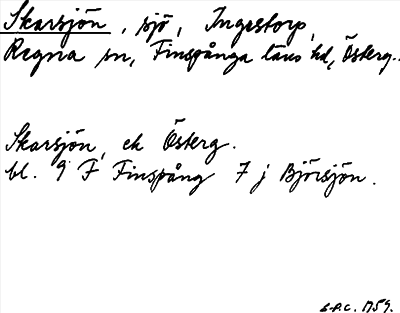 Skarsjön, sjö, Ingestorp,
Regna sn, Finspånga läns hd, Österg..
Skarsjön, ek Österg.
bl. 9 F Finspång 7 j Björsjön.
1959.